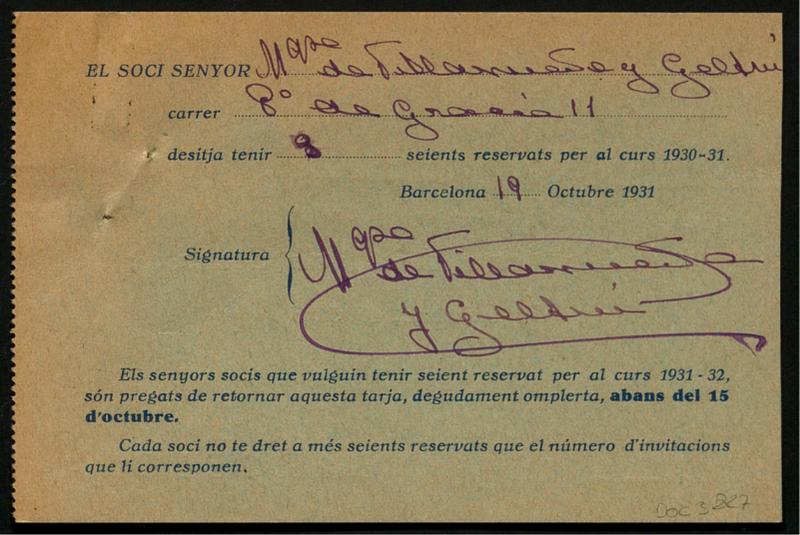 EL SOCI SENYOR Mqsa de Villanueva y Geltrú
carrer Pº de Gracia 11
desitja tenir 3 seients reservats per al curs 1930-31.
Barcelona 19 Octubre 1931
Signatura
Mqsa
de Villanueva
y Geltrú
Els senyors socis que vulguin tenir seient reservat per al curs 1931 - 32,
són pregats de retornar aquesta tarja, degudament omplerta, abans del 15
d'octubre.
Cada soci no te dret a més seients reservats que el número d'invitacions
que li corresponen.
DOC 3327